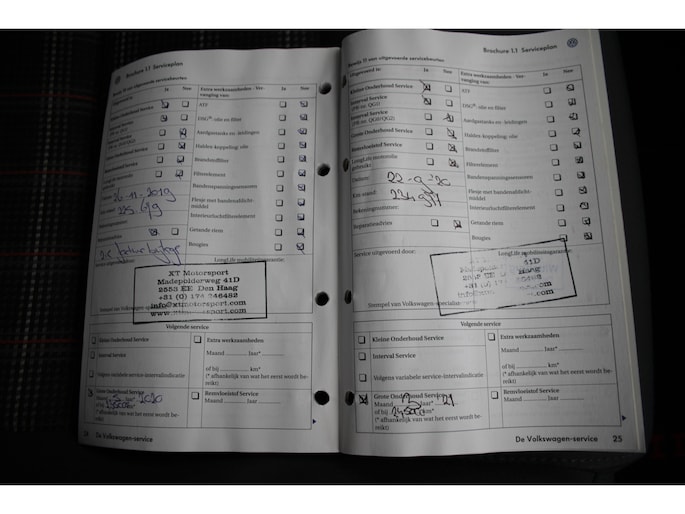 Brochure 1.1 Serviceplan
Ja Nee
Extra werkzaamheden - Ver-
vanging van:
ATF
DSG®-olie en filter
Aardgastanks en -leidingen
Haldex-koppeling: olie
Brandstoffilter
Filterelement
Bandenspanningssensoren
Flesje met bandenafdicht-
middel
Interieurluchtfilterelement
Getande riem
Bougies
26-11-2019
225.679
LongLife mobiliteitsgarantie:
XT Motorsport
Madepolderweg 41D
2553 EE Den Haag
+31 (0) 174 246482
info@xtmotorsport.com
Stempel van Volkswagen
Volgende service
Kleine Onderhoud Service
Interval Service
Volgens variabele service-intervalindicatie
Grote Onderhoud Service
Maand jaar* 2020
of bij km*
(* afhankelijk van wat het eerst wordt be-
reikt)
Extra werkzaamheden
Maand jaar*
of bij km*
(* afhankelijk van wat het eerst wordt be-
reikt)
Remvloeistof Service
Maand jaar
De Volkswagen-service
Brochure 1.1 Serviceplan
Bewijs 11 van uitgevoerde servicebeurten
Uitgevoerd is: Ja Nee
Kleine Onderhoud Service
Interval Service
(PR-nr. QG1)
Interval Service
(PR-nr. QG0/QG2)
Grote Onderhoud Service
Remvloeistof Service
LongLife motorolie
gebruikt:
Datum: 22-9-'20
Km-stand:
Rekeningnummer:
Reparatieadvies
Extra werkzaamheden - Ver-
vanging van: Ja Nee
ATF
DSG®-olie en filter
Aardgastanks en -leidingen
Haldex-koppeling: olie
Brandstoffilter
Filterelement
Bandenspanningssensoren
Flesje met bandenafdicht-
middel
Interieurluchtfilterelement
Getande riem
Bougies
Service uitgevoerd door:
LongLife mobiliteitsgarantie:
41D
Haag
Stempel van Volkswagen-specialist
Volgende service
Kleine Onderhoud Service
Interval Service
Volgens variabele service-intervalindicatie
Grote Onderhoud Service
Maand 5 jaar* 21
of bij km*
(* afhankelijk van wat het eerst wordt be-
reikt)
Extra werkzaamheden
Maand jaar*
of bij km*
(* afhankelijk van wat het eerst wordt be-
reikt)
Remvloeistof Service
Maand jaar
De Volkswagen-service 25